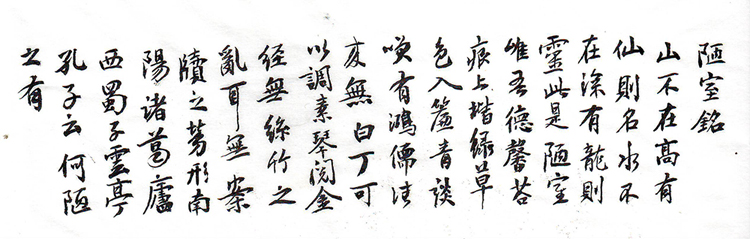 陋室銘
山不在高有
仙則名水不
在深有龍則
靈此是陋室
惟吾德馨苔
痕上堦緑草
色入簾青談
笑有鴻儒往
来無白丁可
以調素琴閱金
經無絲竹之
亂耳無案
牘之勞形南
陽諸葛廬
西蜀子雲亭
孔子云何陋
之有